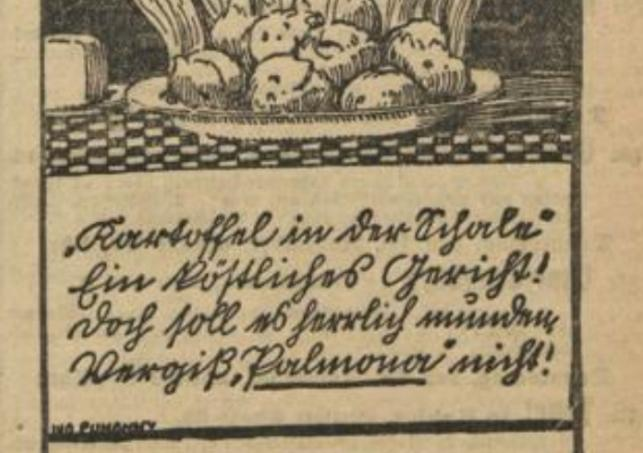 „Kartoffel in der Schale“
Ein köstliches Gericht!
Doch soll es herrlich munden,
Vergiß „Palmona“ nicht!